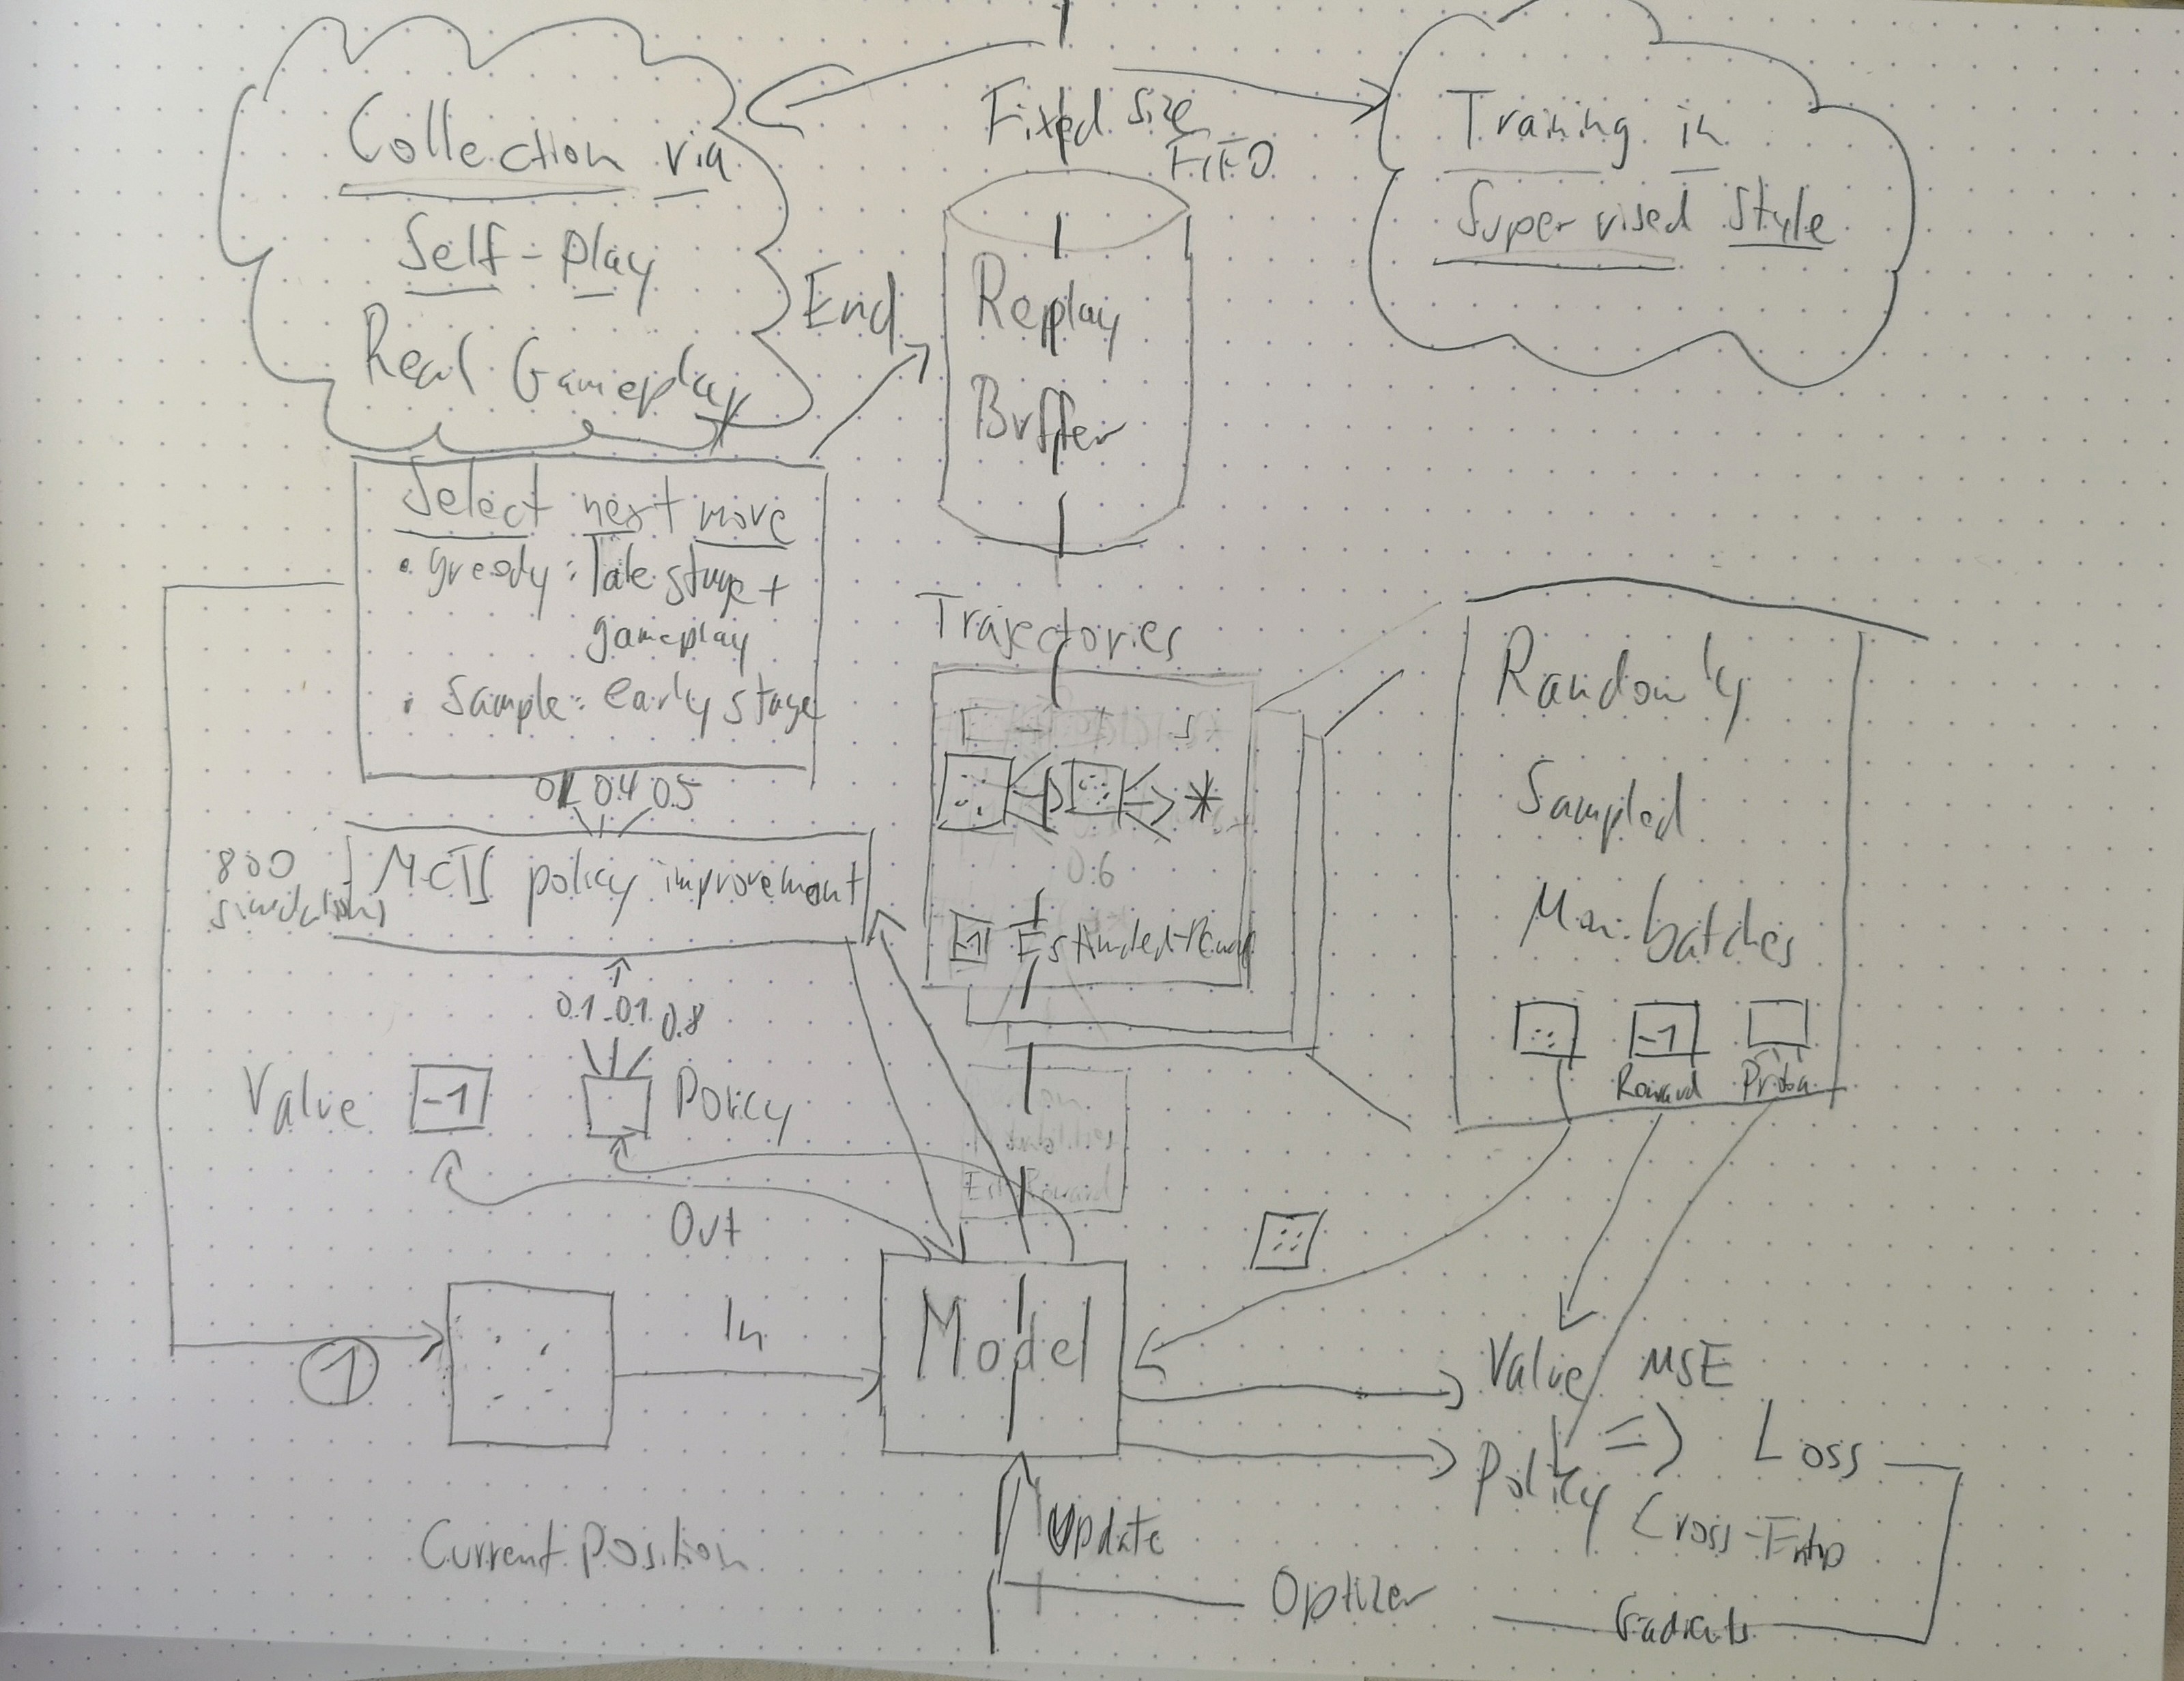 Collection via
Self-play
Real Gameplay
Fixed Size
FIFO
Training in
Supervised Style
End
Replay
Buffer
Select next move
• greedy: late stage +
gameplay
• Sample: early stage
0.1 0.4 0.5
800
simulations
MCTS policy improvement
0.1 0.1 0.8
Value
-1
Policy
Out
1
In
Current Position
Trajectories
0.6
-1
Model
Update
Randomly
Sampled
Mini batches
-1
Reward
Value MSE
Policy => Loss
Cross-Entro
Optizer
Gradients